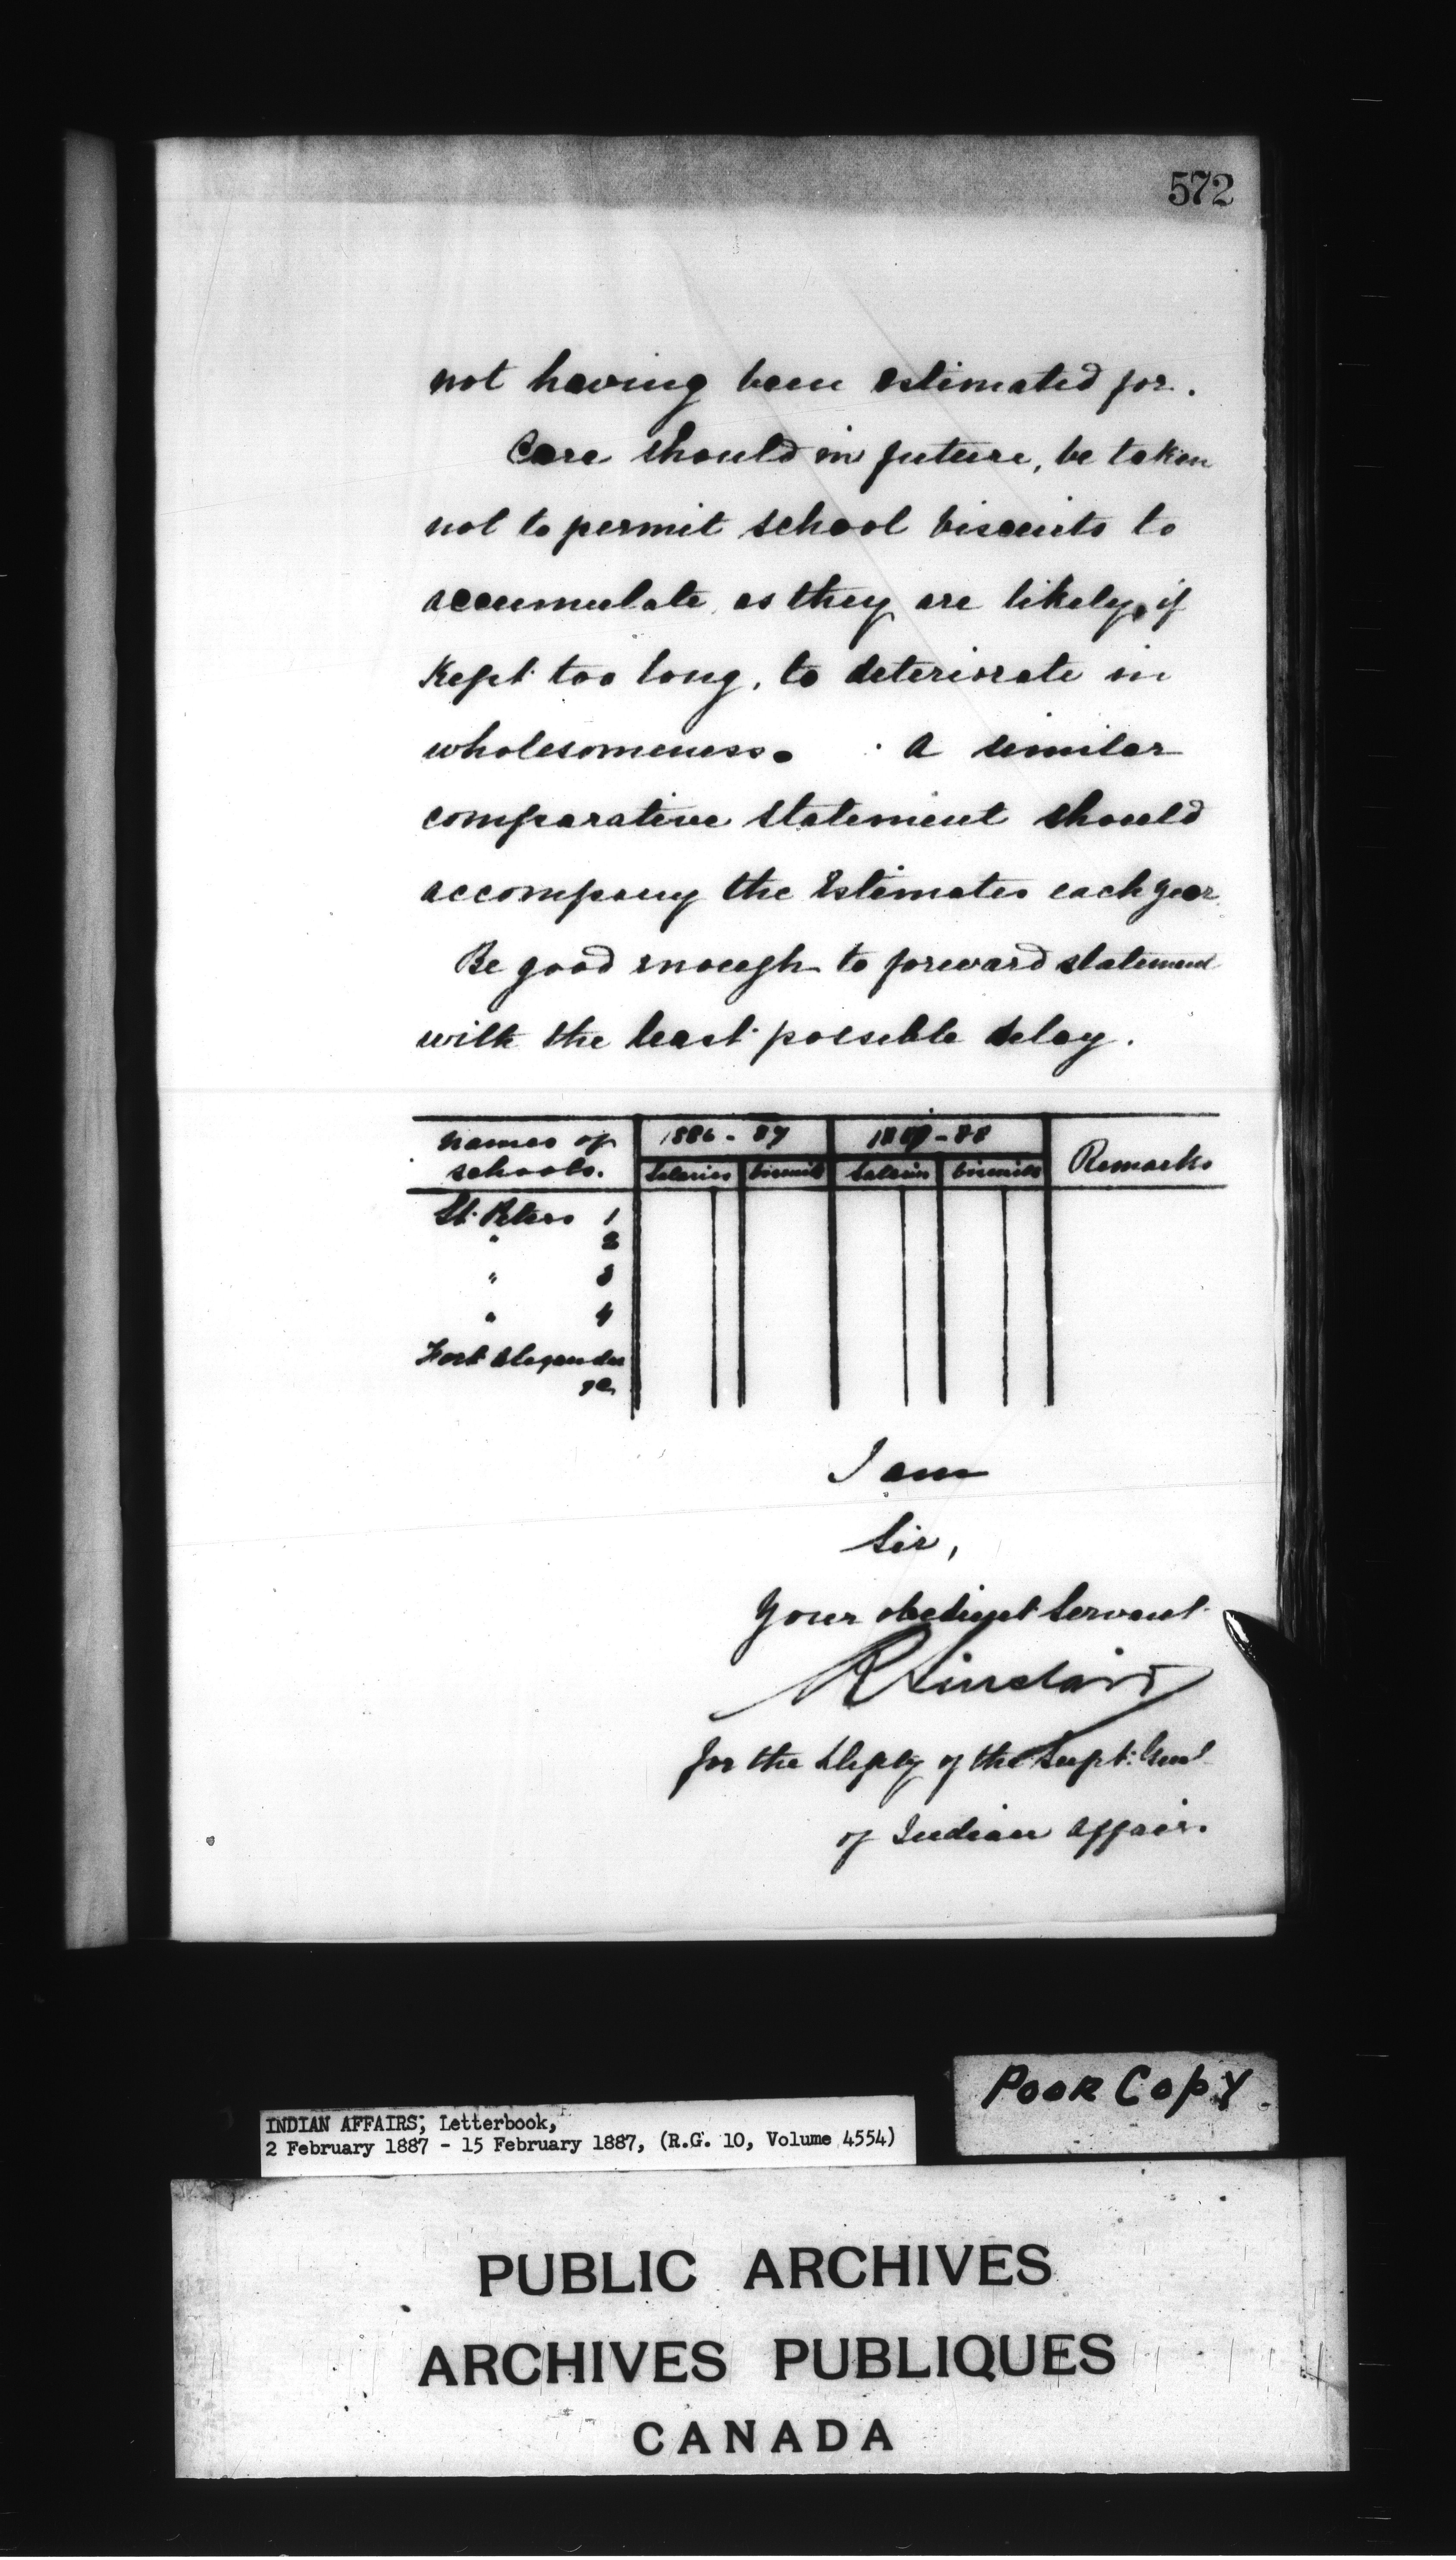 572
not having been estimated for.
Care should in future, be taken
not to permit school biscuits to
accumulate, as they are likely, if
kept too long, to deteriorate in
wholesomeness. A similar
comparative statement should
accompany the Estimates each year.
Be good enough to forward statement
with the least possible delay.
names of schools. 1886-87 1887-88 Remarks
Salaries biscuits Salaries biscuits
St. Peters 1
" 2
" 3
" 4
Fort Alexander
&c.
I am
Sir,
Your obedient Servant
R Sinclair
for the Depty of the Supt. Genl
of Indian Affairs.
POOR COPY
INDIAN AFFAIRS; Letterbook,
2 February 1887 - 15 February 1887, (R.G. 10, Volume 4554)
PUBLIC ARCHIVES
ARCHIVES PUBLIQUES
CANADA